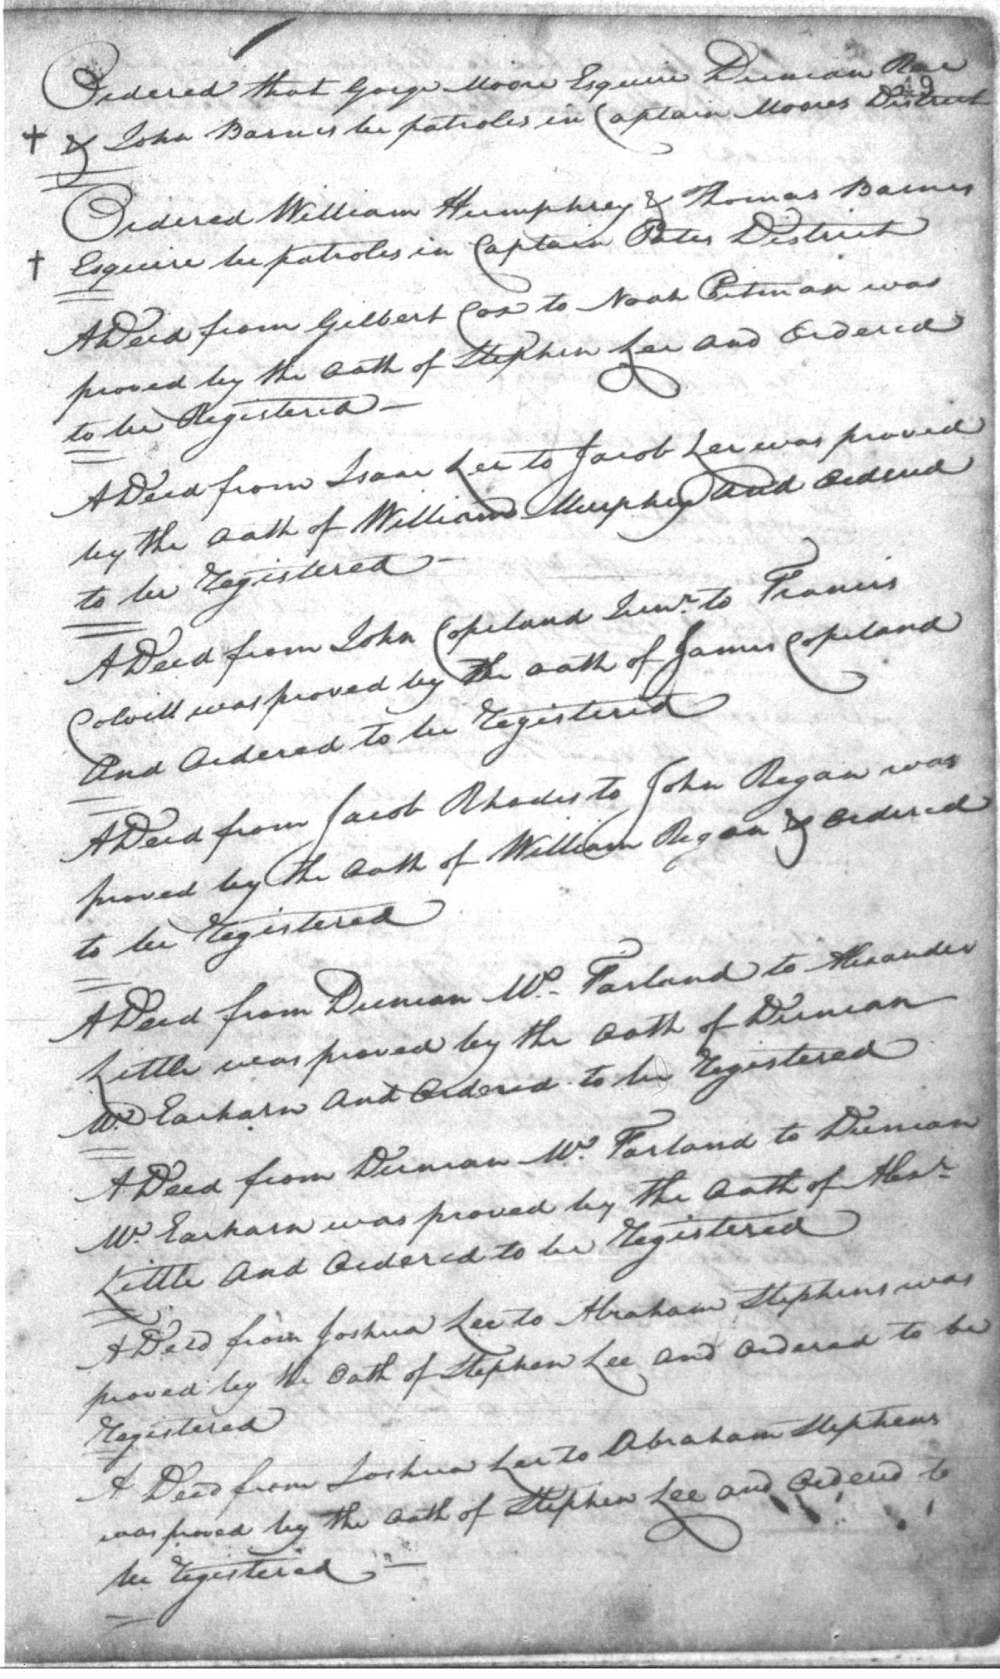 Ordered that Gorge Moore Esquire Duncan Rae
49
& John Barnes be patroles in Captain Moores District
Ordered William Humphrey & Thomas Barnes
Esquire be patroles in Captain Pates District
A Deed from Gilbert Cox to Noah Pitman was
proved by the oath of Stephen Lee and Ordered
to be Registered
A Deed from Isaac Lee to Jacob Lee was proved
by the oath of William Murphey and Ordered
to be Registered
A Deed from John Copeland Junr. to Francis
Colvill was proved by the oath of James Copeland
And Ordered to be Registered
A Deed from Jacob Rhodes to John Regan was
proved by the oath of William Regan & Ordered
to be Registered
A Deed from Duncan Mc. Farland to Alexander
Little was proved by the oath of Duncan
Mc. Eacharn And Ordered to be Registered
A Deed from Duncan Mc. Farland to Duncan
Mc. Eacharn was proved by the oath of Alexr.
Little And Ordered to be Registered
A Deed from Joshua Lee to Abraham Stephens was
proved by the Oath of Stephen Lee and Ordered to be
Registered
A Deed from Joshua Lee to Abraham Stephens
was proved by the oath of Stephen Lee and Ordered to
be Registered